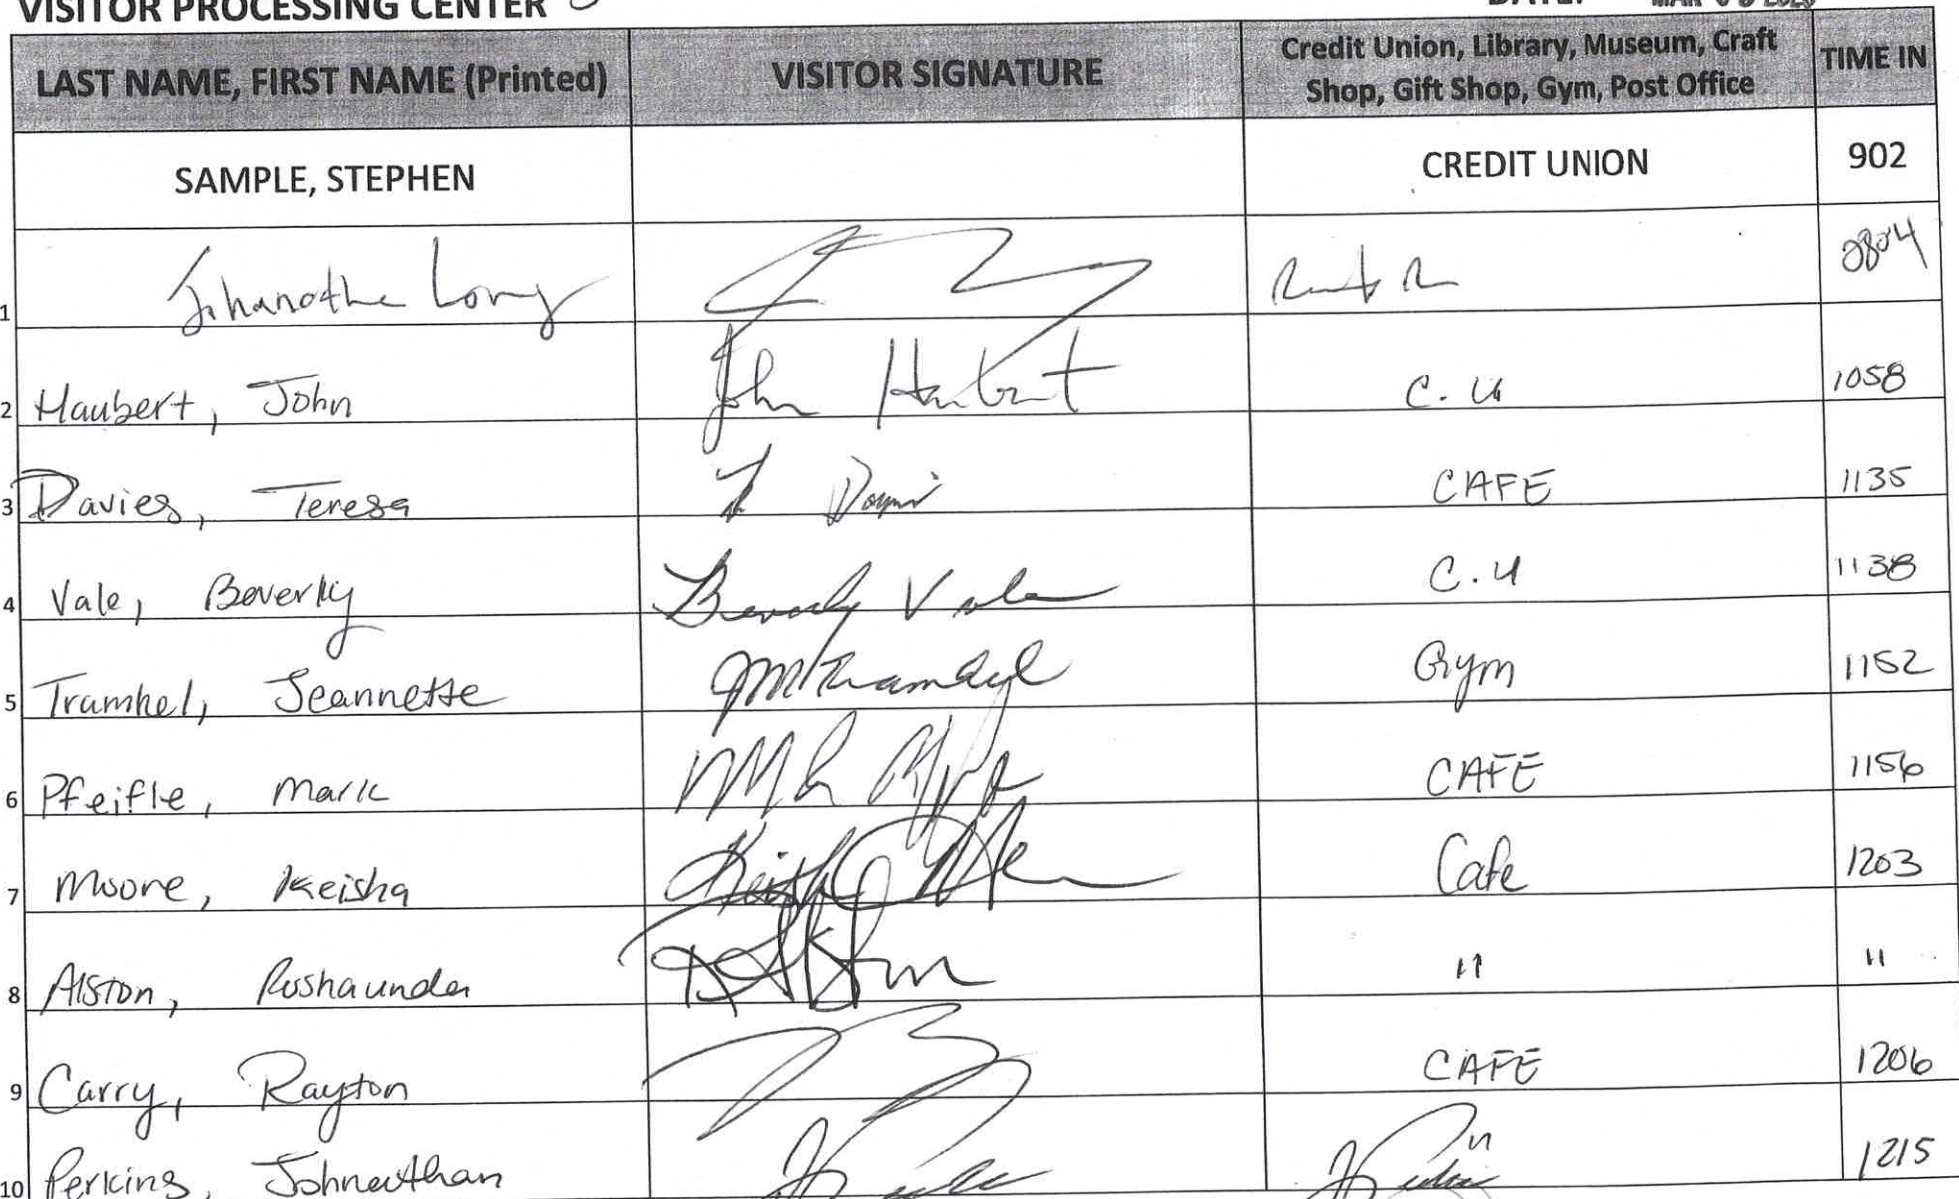 VISITOR PROCESSING CENTER
DATE: MAR
LAST NAME, FIRST NAME (Printed) VISITOR SIGNATURE Credit Union, Library, Museum, Craft Shop, Gift Shop, Gym, Post Office TIME IN
SAMPLE, STEPHEN CREDIT UNION 902
1 Long
2 Haubert, John John Haubert C. U 1058
3 Davies, Teresa CAFE 1135
4 Vale, Beverly Beverly Vale C.U 1138
5 Tramhel, Jeannette Gym 1152
6 Pfeifle, Mark CAFE 1156
7 Moore, Keisha Cafe 1203
8 Alston, Roshaunda " "
9 Carry, Rayton CAFE 1206
10 Perkins, Johnathan " 1215